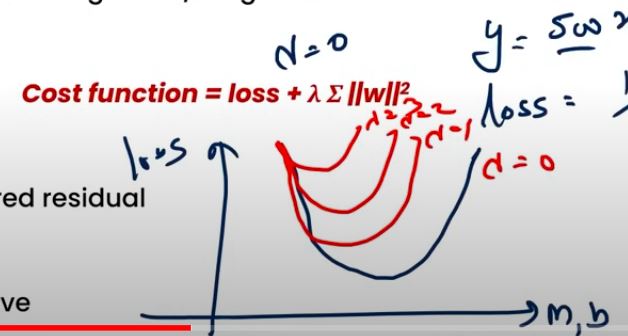 λ = 0
y = 500 x
Cost function = loss + λ Σ ||w||²
loss =
λ=2
λ=1
loss
λ = 0
red residual
ve
m, b